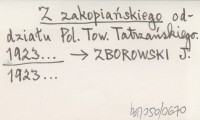 Z zakopiańskiego od-
działu Pol. Tow. Tatrzańskiego.
1923... → ZBOROWSKI J.
1923...